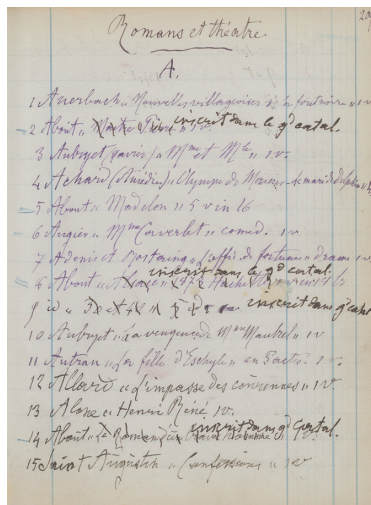 20
Romans et théâtre.
A.
1 Auerbach « Nouvelles villageoises de la forêt noire » 1 v
2 About « inscrit dans le gd catal.
3 Aubryet (Xavier) « Mme et Mlle » 1 v.
4 Achard (Amédée) « Olympe de Mezières - le mari de Delphine »
5 About « Madelon » 5 v in 16
6 Augier « Mme Caverlet » comed. 1 v
7 Adenis et Rostaing « drame 1 v.
8 About « inscrit dans le gd catal.
9 id « inscrit dans gd catal
10 Aubryet « la vengeance de Mme Maubrel » 1 v
11 Autran « La fille d'Eschyle » en 5 actes. 1 v.
12 Allard « L'impasse des couronnes » 1 v
13 Alone « Henri Réné 1 v.
14 About « Le Roman inscrit dans gd catal.
15 Saint Augustin « Confessions » 1 v